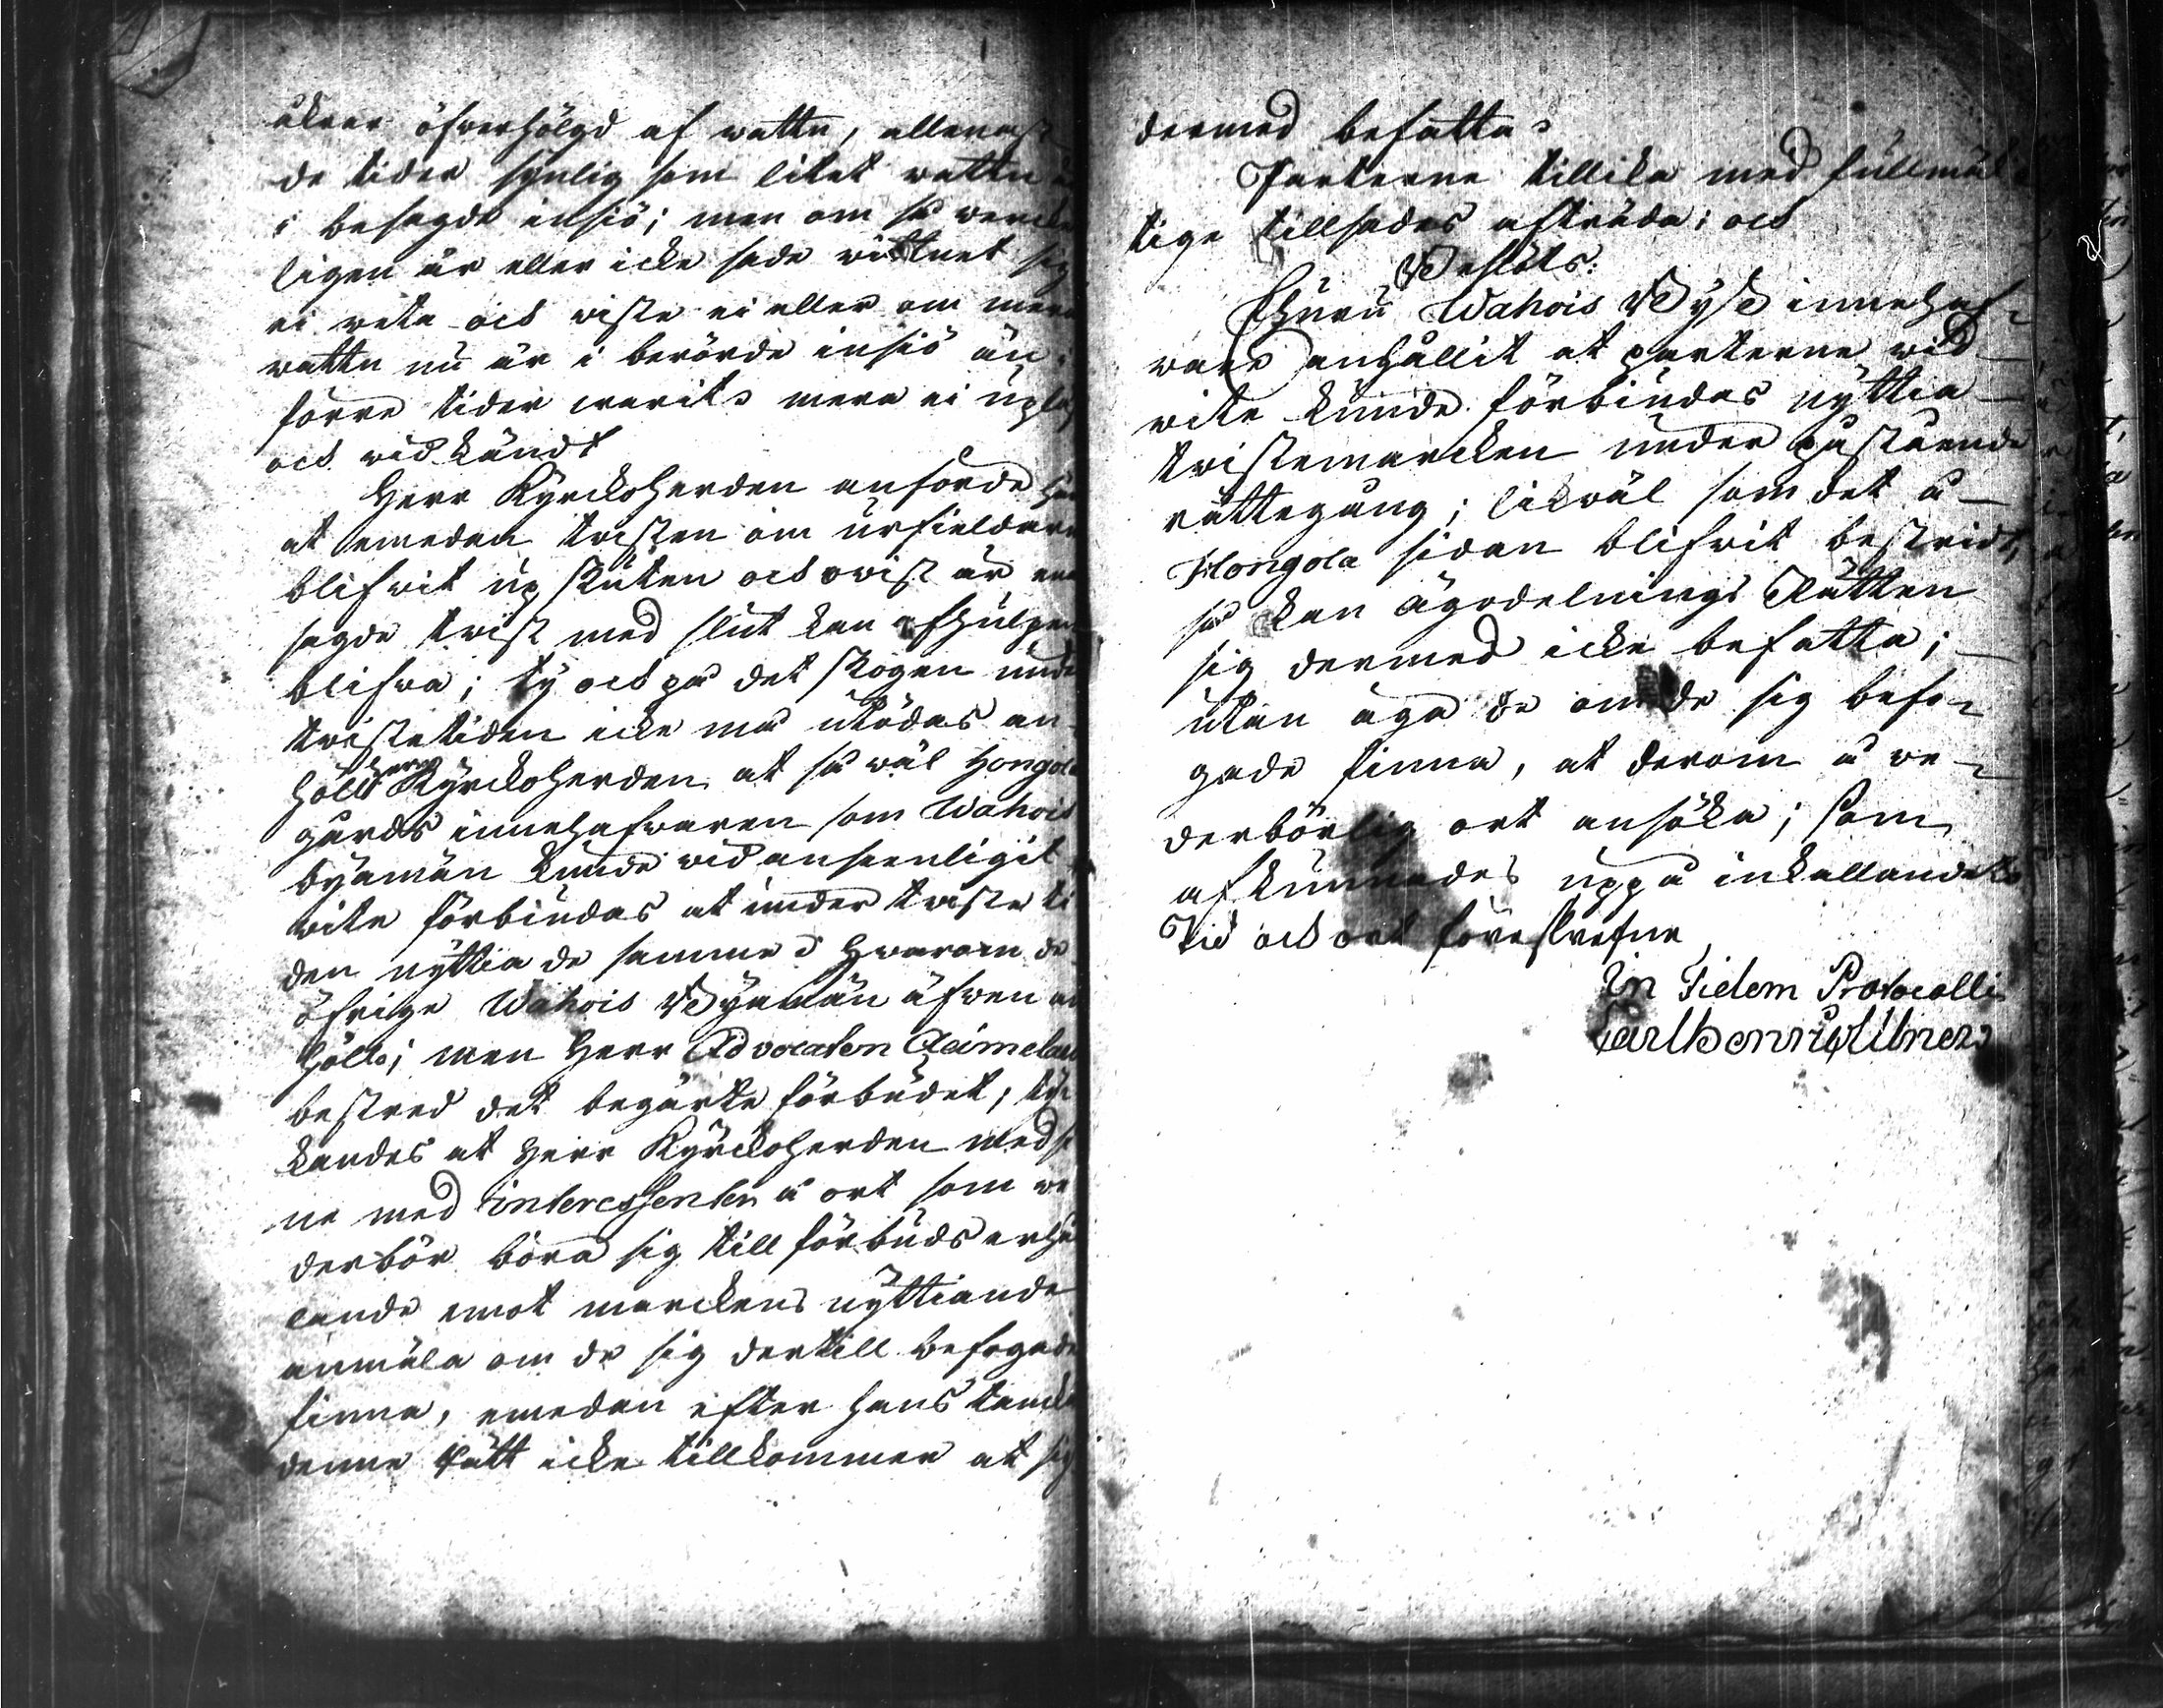 åkrar öfwerhölgd af wattn, allenast
de tider synlig som litet wattn är
i besagde insiö; men om så wercke
ligen är eller icke sade wittnet sig
ei weta och wiste ei eller om mera
wattn nu är i berörde insiö än i
förre tider warit mera ei uplag
och widkändt
Herr Kyrckoherden anförde här
at emedan twisten om urfieldarne
blifwit up skuten och owist är när
sagde twist med slut kan afhulpen
blifwa; ty och på det skogen under
twistetiden icke må utödas an-
hölt Herr Kyrckoherden at så wäl Hongola
gårds innehafwaren som Wahois
byamän kunde wid ansenligit
wite förbiudas at under twiste ti
den nyttia de samme hwarom de
öfrige Wahois Byamän äfwen an
hölt; men Herr Advocaten Aeimelaus
bestred det begärte förbudet, tyc
kandes at Herr Kyrckoherden med si
ne med interessenter å ort som we
derbör böra sig till förbuds erhål
lande emot marckens nyttiande
anmäla om de sig dertill befogade
finna, emedan efter hans tancka
denne Rätt icke tillkommer at sig
dermed befatta
Parterne tillika med fullmäk
tige tillsades afträda; och
Beslöts:
Ehuru Wahois Bys innehaf-
ware anhållit at parterne wid
wite kunde förbiudas nyttia
twistemarcken under påstående
rättegång; likwäl som det å
Hongola sidan blifwit bestridt,
så kan ägodelnings Rätten
sig dermed icke befatta;
utan äga de om de sig befo-
gade finna, at derom å we-
derbörlig ort ansöka; som
afkunnades uppå inkallandet
Tid och ort föreskrefne
In Fidem Protocolli
Carl Henric Ullner